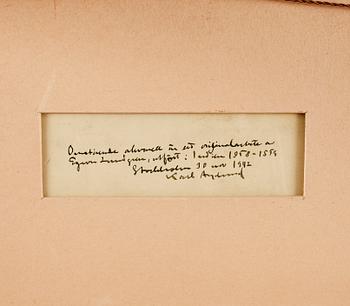 Omstående akvarell är ett originalarbete a
Egron Lundgren, utfört i Indien 1858-1859
Stockholm 30 nov 1942
Karl Asplund